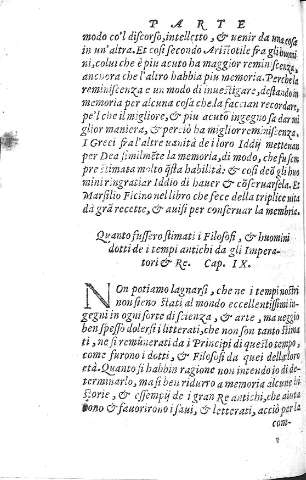 PARTE
modo co'l discorso, intelletto, & uenir da una cosa
in un'altra. Et cosi secondo Aristotile fra gli huomi
ni, colui che è piu acuto ha maggior reminiscenza,
anchora che l'altro habbia piu memoria. Perche la
reminiscenza e un modo di inuestigare, destando in
memoria per alcuna cosa che la faccian recordare,
pe'l che il migliore, & piu acuto ingegno sa dar mi
glior maniera, & perciò ha miglior reminiscenza.
I Greci fra l'altre uanità de i loro Iddij metteuan
per Dea similmẽte la memoria, di modo, che fu sem
pre stimata molto q̃sta habilità: & cosi deõ gli huo
mini ringratiar Iddio di hauer & cõseruarsela. Et
Marsilio Ficino nel libro che fece della triplice uita
da grã recette, & auisi per conseruar la memoria.
Quanto fussero stimati i Filosofi, & huomini
dotti de i tempi antichi da gli Impera-
tori & Re. Cap. IX.
NON potiamo lagnarsi, che ne i tempi nostri
non sieno stati al mondo eccellentissimi in-
gegni in ogni sorte di scienza, & arte, ma ueggio
ben spesso dolersi i litterati, che non son tanto stima
ti, ne si remunerati da i Principi di questo tempo,
come furono i dotti, & Filosofi da quei della loro
età. Quanto si habbin ragione non intendo io di de-
terminarlo, ma si ben ridurro a memoria alcune hi
storie, & essempij de i gran Re antichi, che aiuta
uono & fauorirono i saui, & letterati, acciò per la
com-